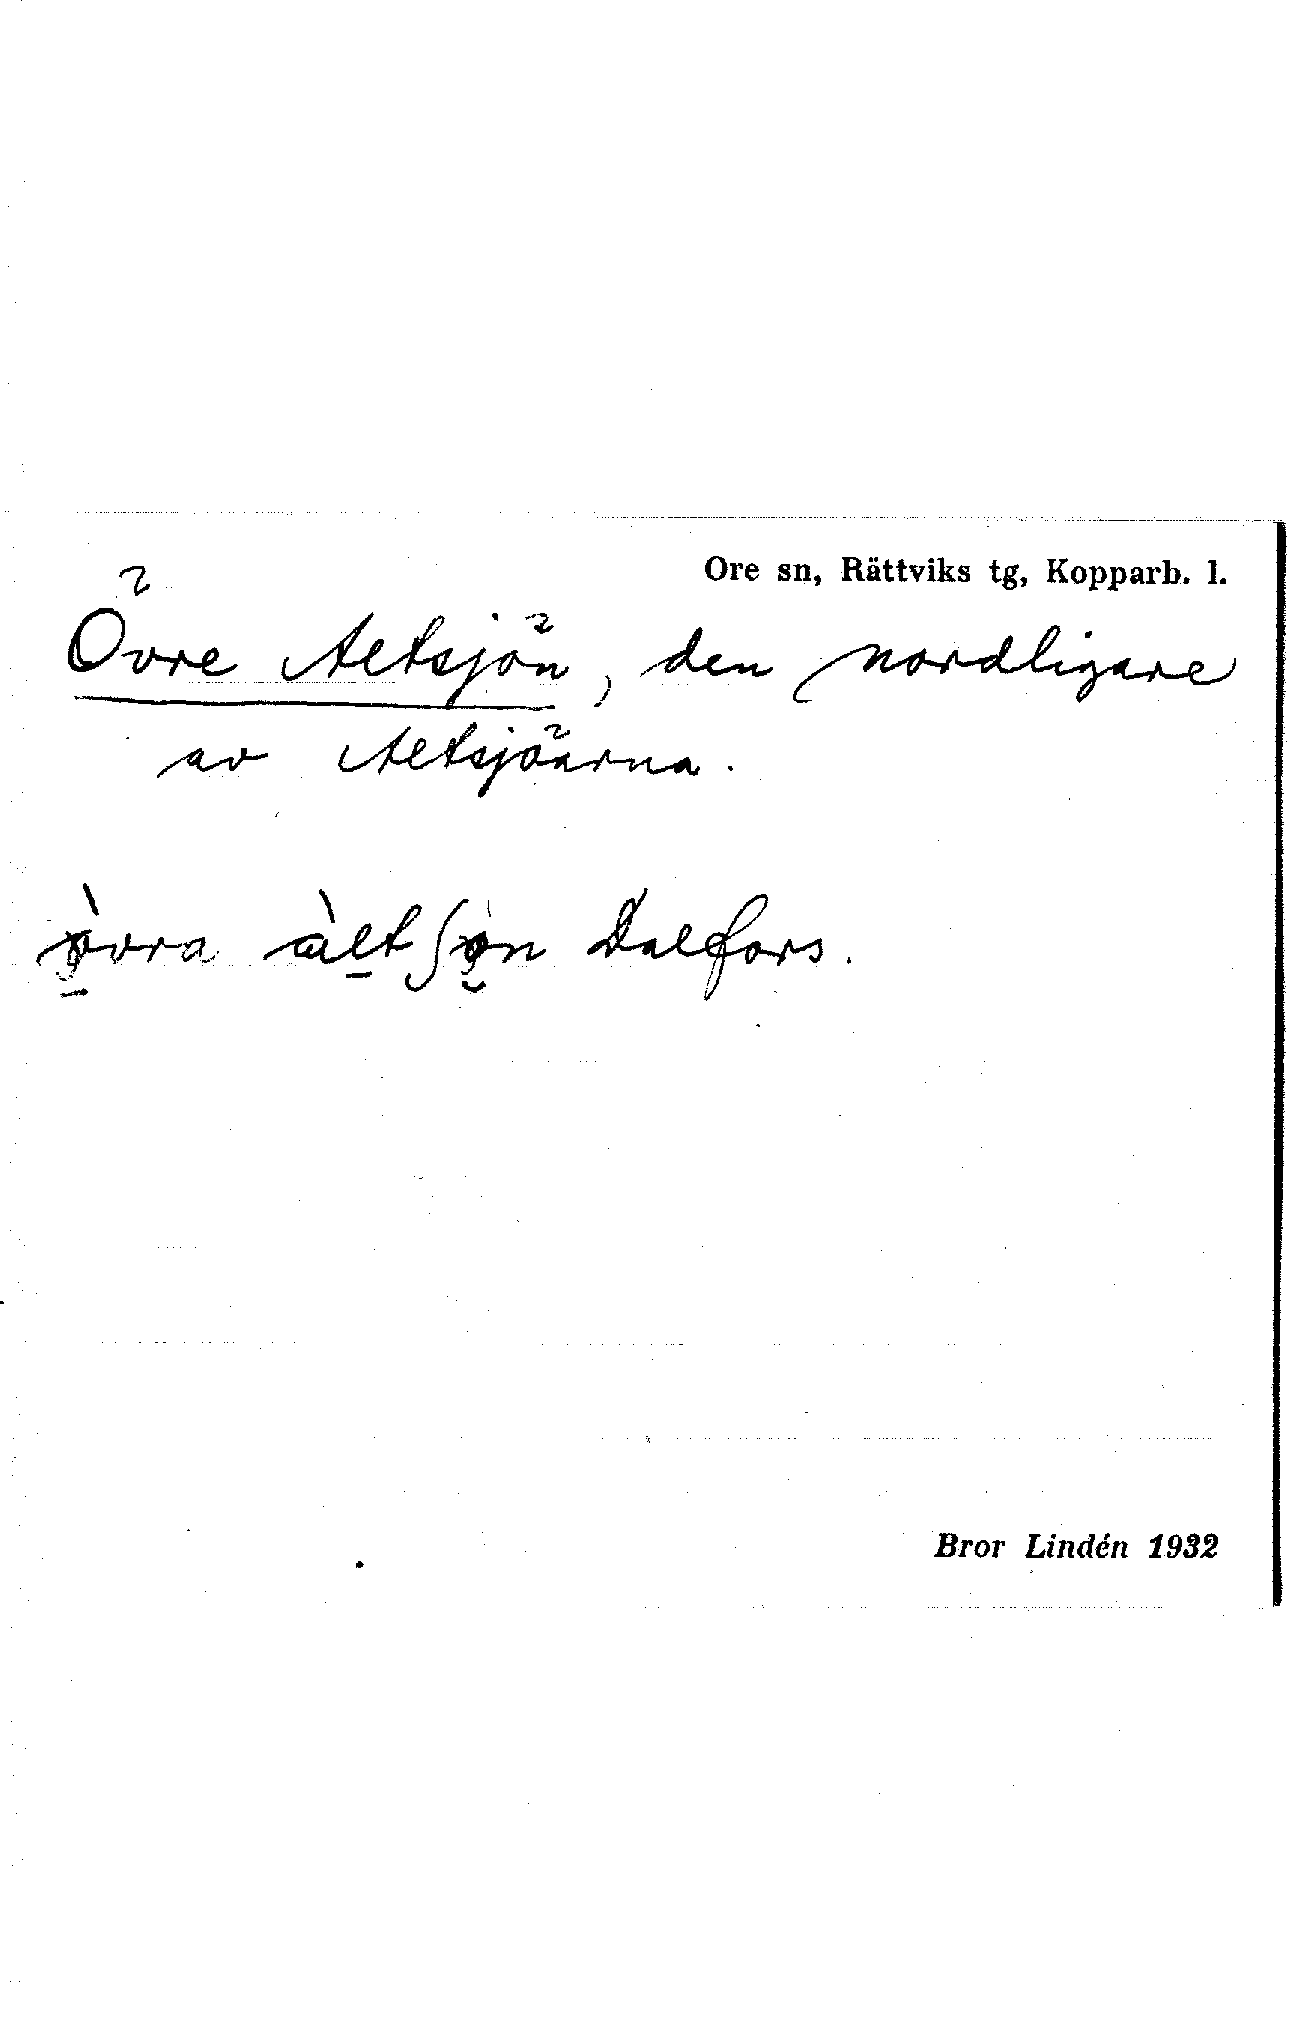 Ore sn, Rättviks tg, Kopparb. l.
Övre Altsjön, den nordligare
av Altsjöarna.
òvra àltʃòn Dalfors.
Bror Lindén 1932